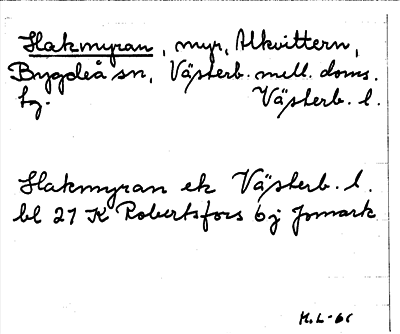 Hakmyran, myr, Alkvittern,
Bygdeå sn, Västerb. mell. doms.
tg. Västerb. l.
Hakmyran ek Västerb. l.
bl 27 K Robertsfors 6j Jomark
H.L-61